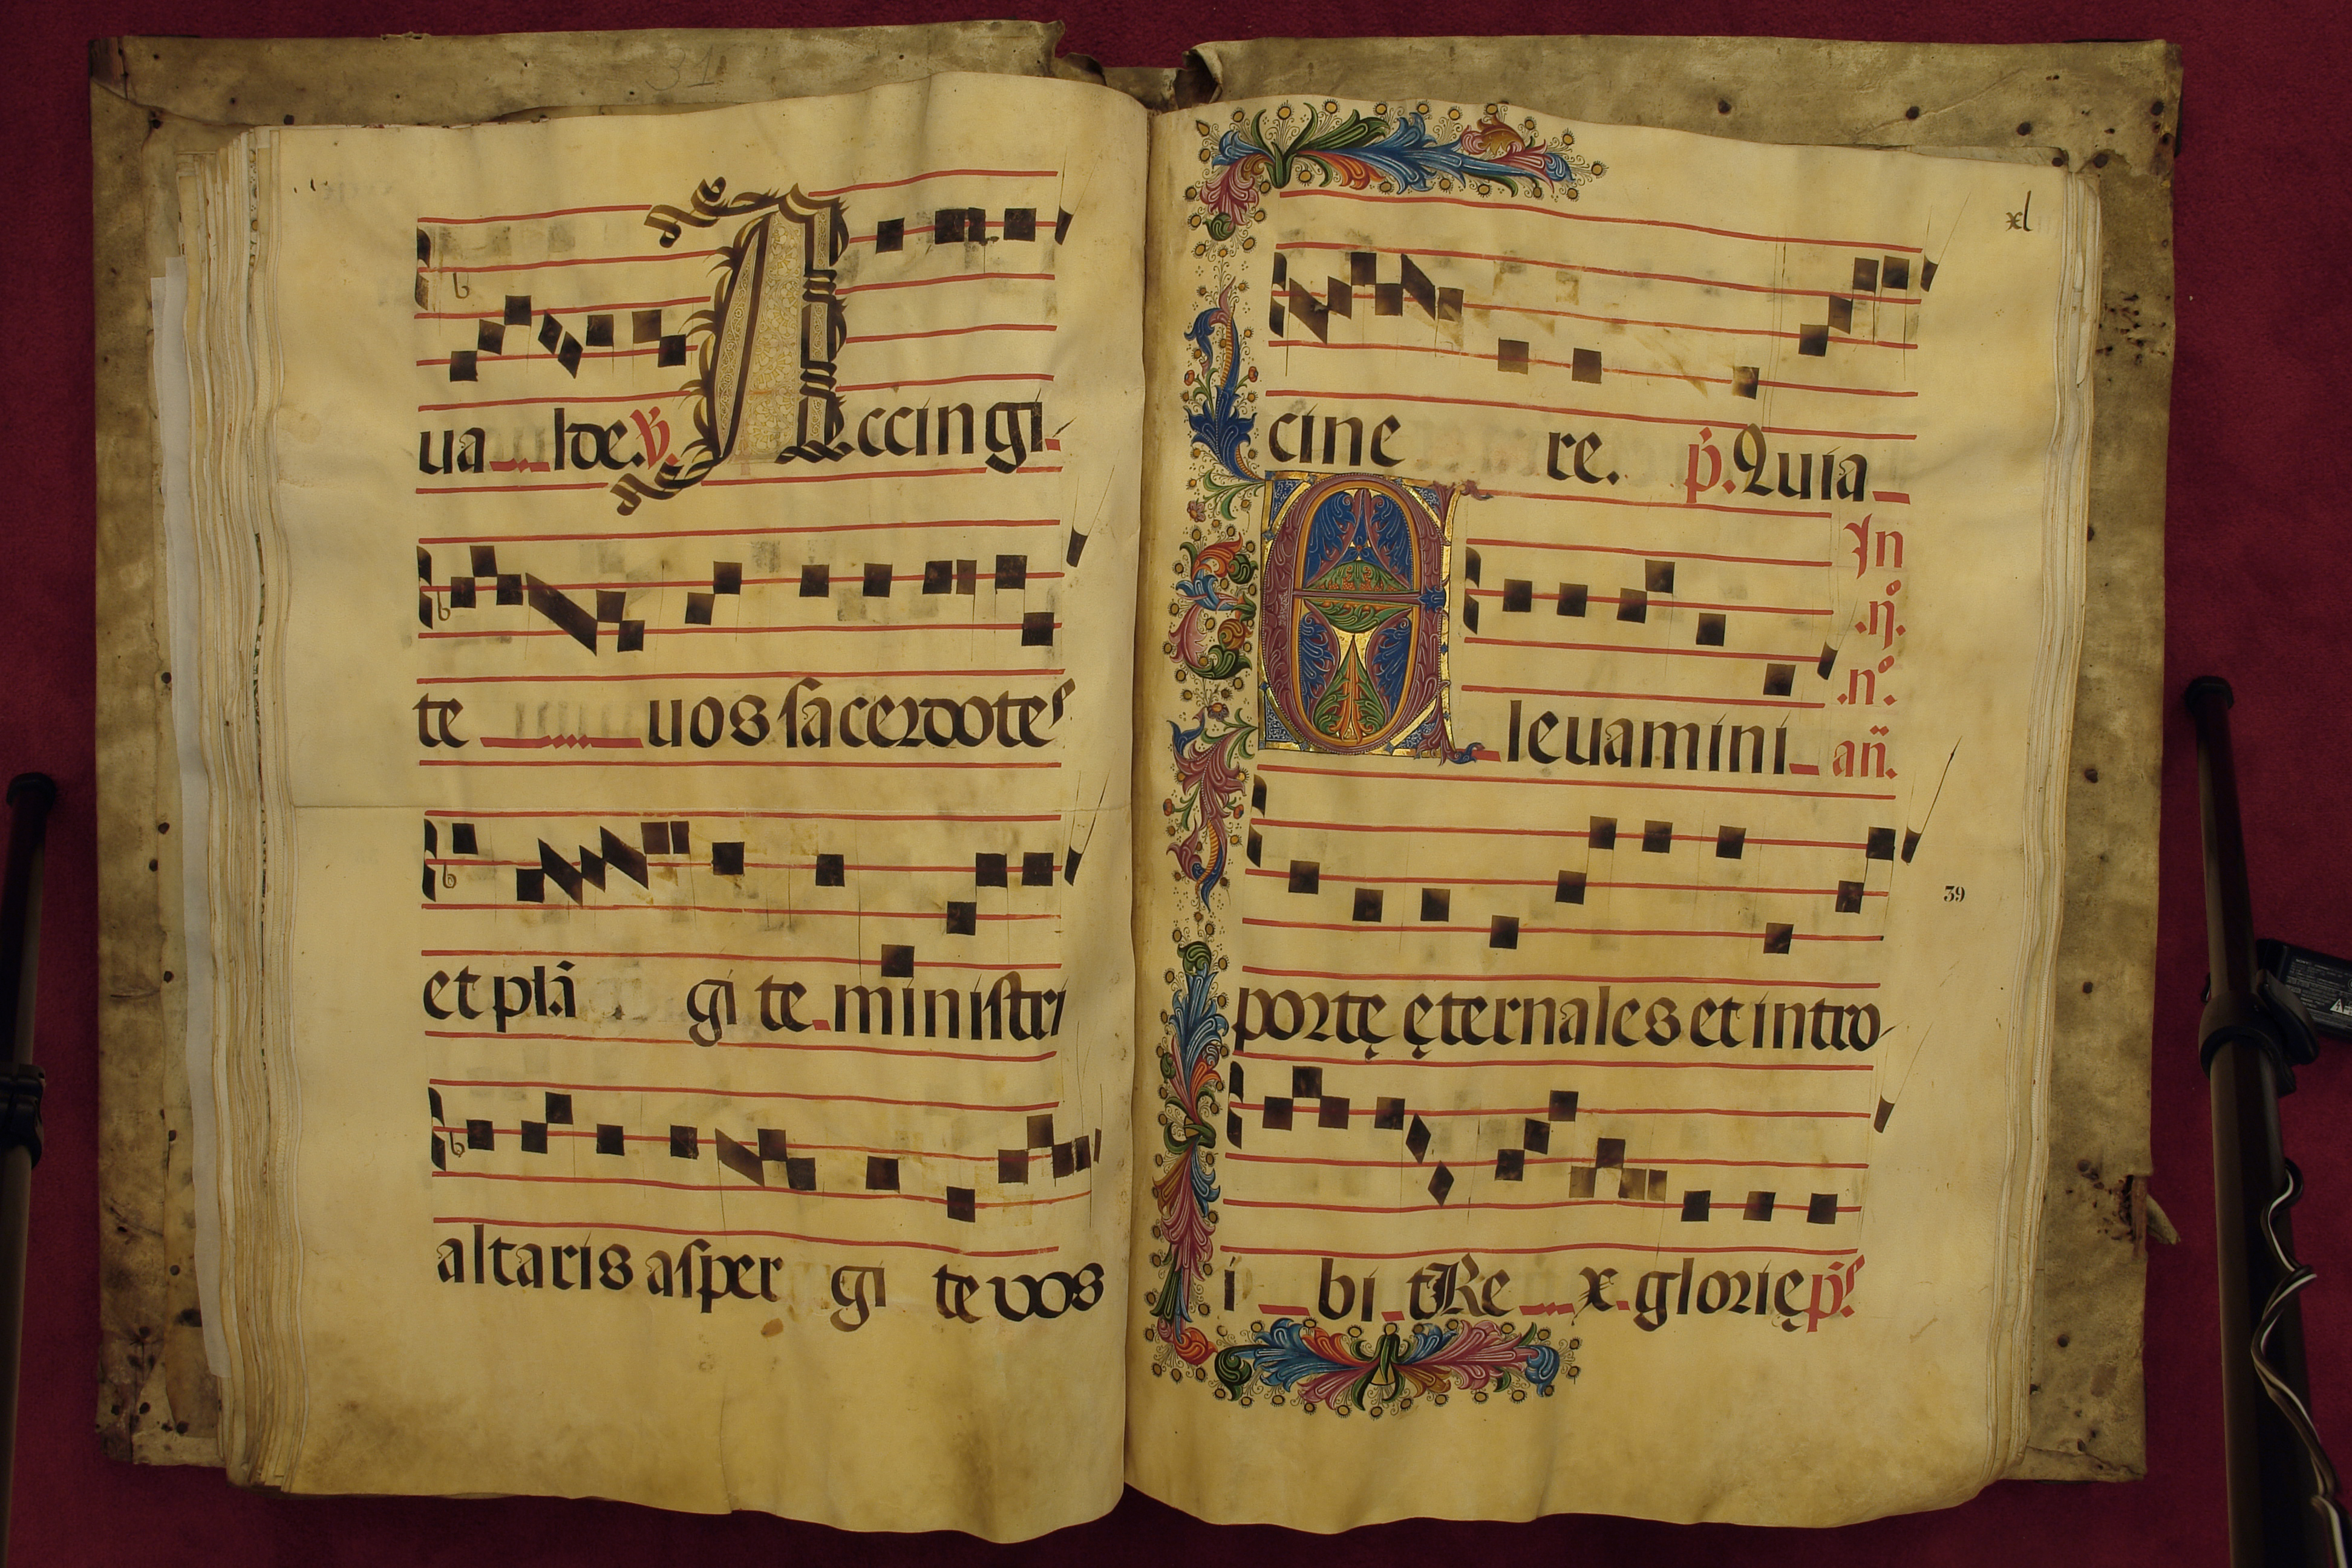 31
ua lde. ℣. Accingi
te uos sacerdotes
et plā gi te ministri
altaris asper gi te vos
xl
cine re. p̄. Quia
In
.ij.
.n°.
Eleuamini añ.
39
portę ęternales et intro
i bi t Re x glorię p̄s̄